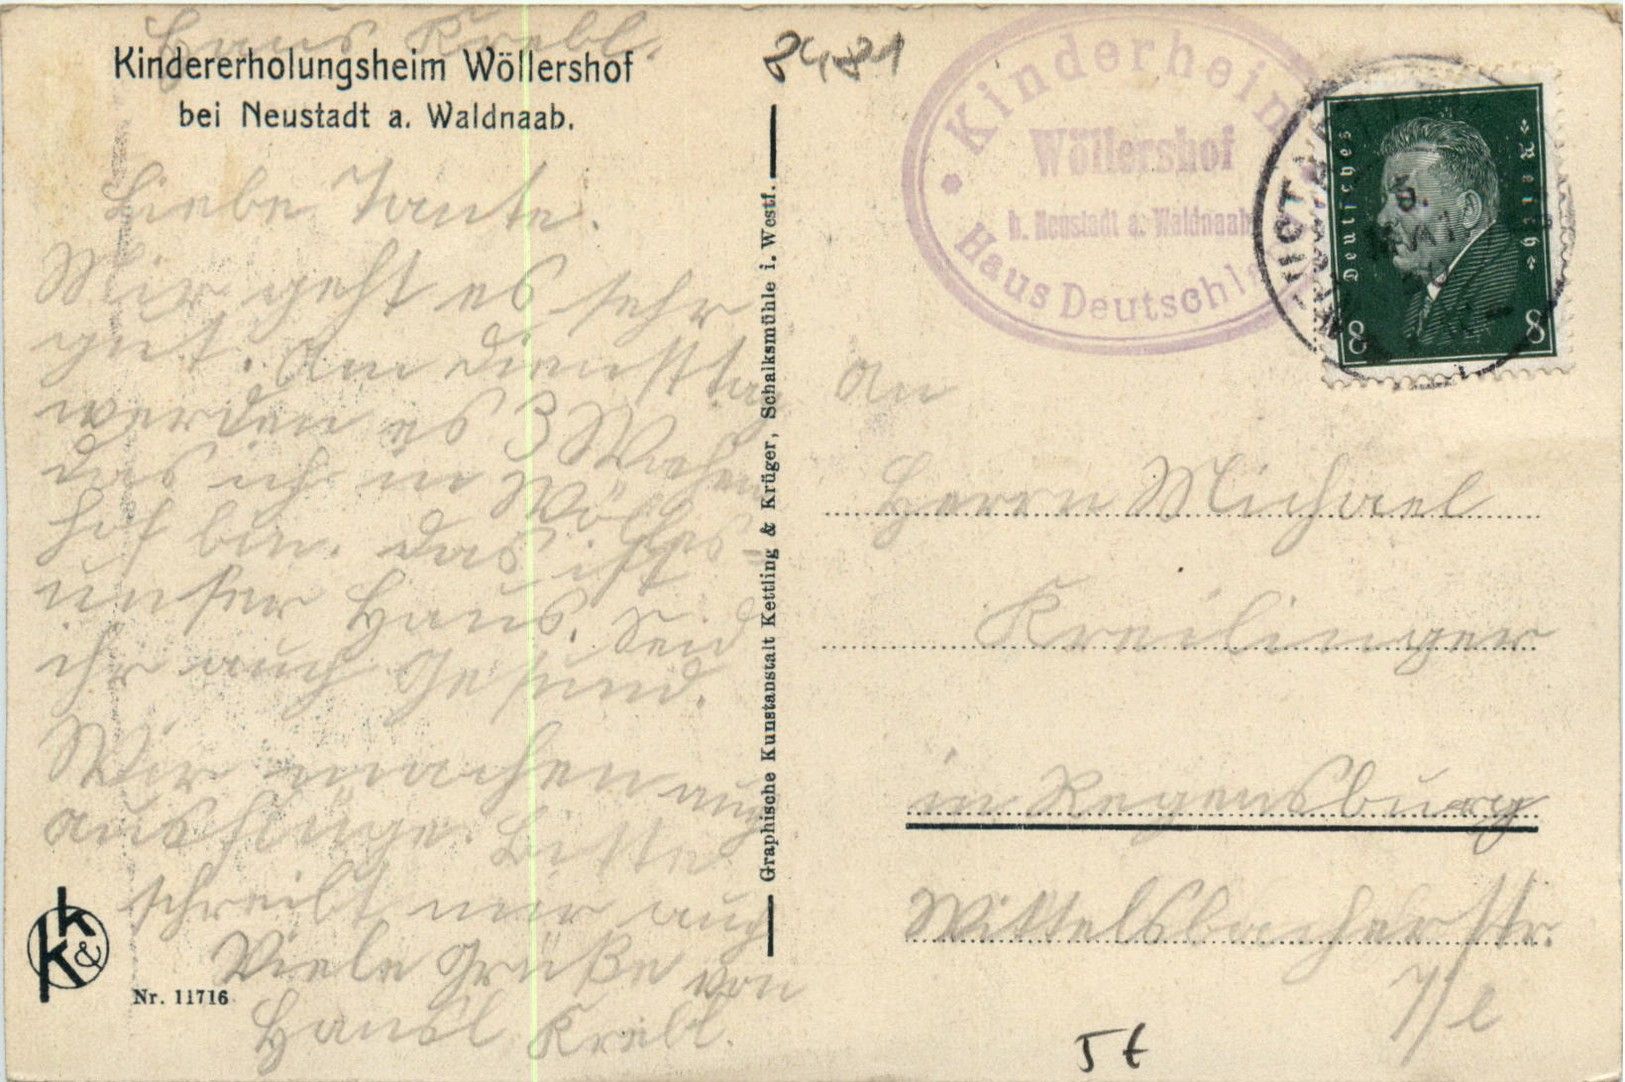 Hans Krebl.
Kindererholungsheim Wöllershof
bei Neustadt a. Waldnaab.
Liebe Tante.
Wir geht es sehr
gut. Am Dienstag
werden es 3 Wochen
das ich in Wölles-
hof bin. Das ist
unser Haus. Seid
ihr auch Gesund.
Wir machen auch
ausflüge. Bitte
schreibt mir auch
Viele Grüße von
Hansl Krebl.
Nr. 11716
k & k
Graphische Kunstanstalt Kettling & Krüger, Schalksmühle i. Westf.
Kinderheim
Wöllershof
b. Neustadt a. Waldnaab
Haus Deutschla
Deutsches Reich
8 8
An
Herrn Michael
Kreilinger
in Regensburg
Wittelsbacherstr.